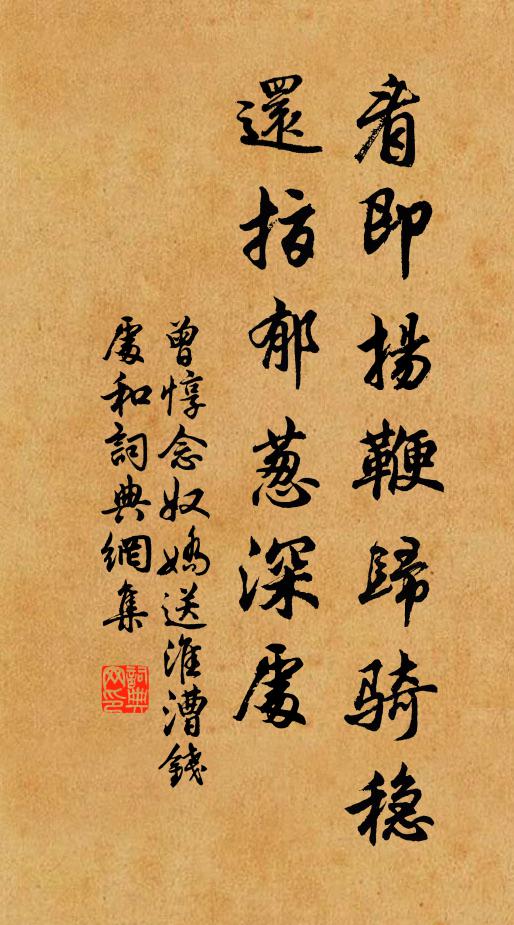 看即揚鞭歸騎穩
還指郁葱深處
曾惇念奴嬌送淮漕錢
處和詞典網集
詞典
網印